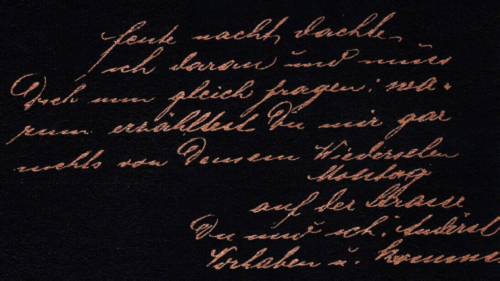 heute nacht dachte
ich daran und muss
Dich nun gleich fragen: wa-
rum erzähltest Du mir gar
nichts von Deinem Wiedersehen
Montag
auf der Strasse
Du und ich:
Vorhaben u.